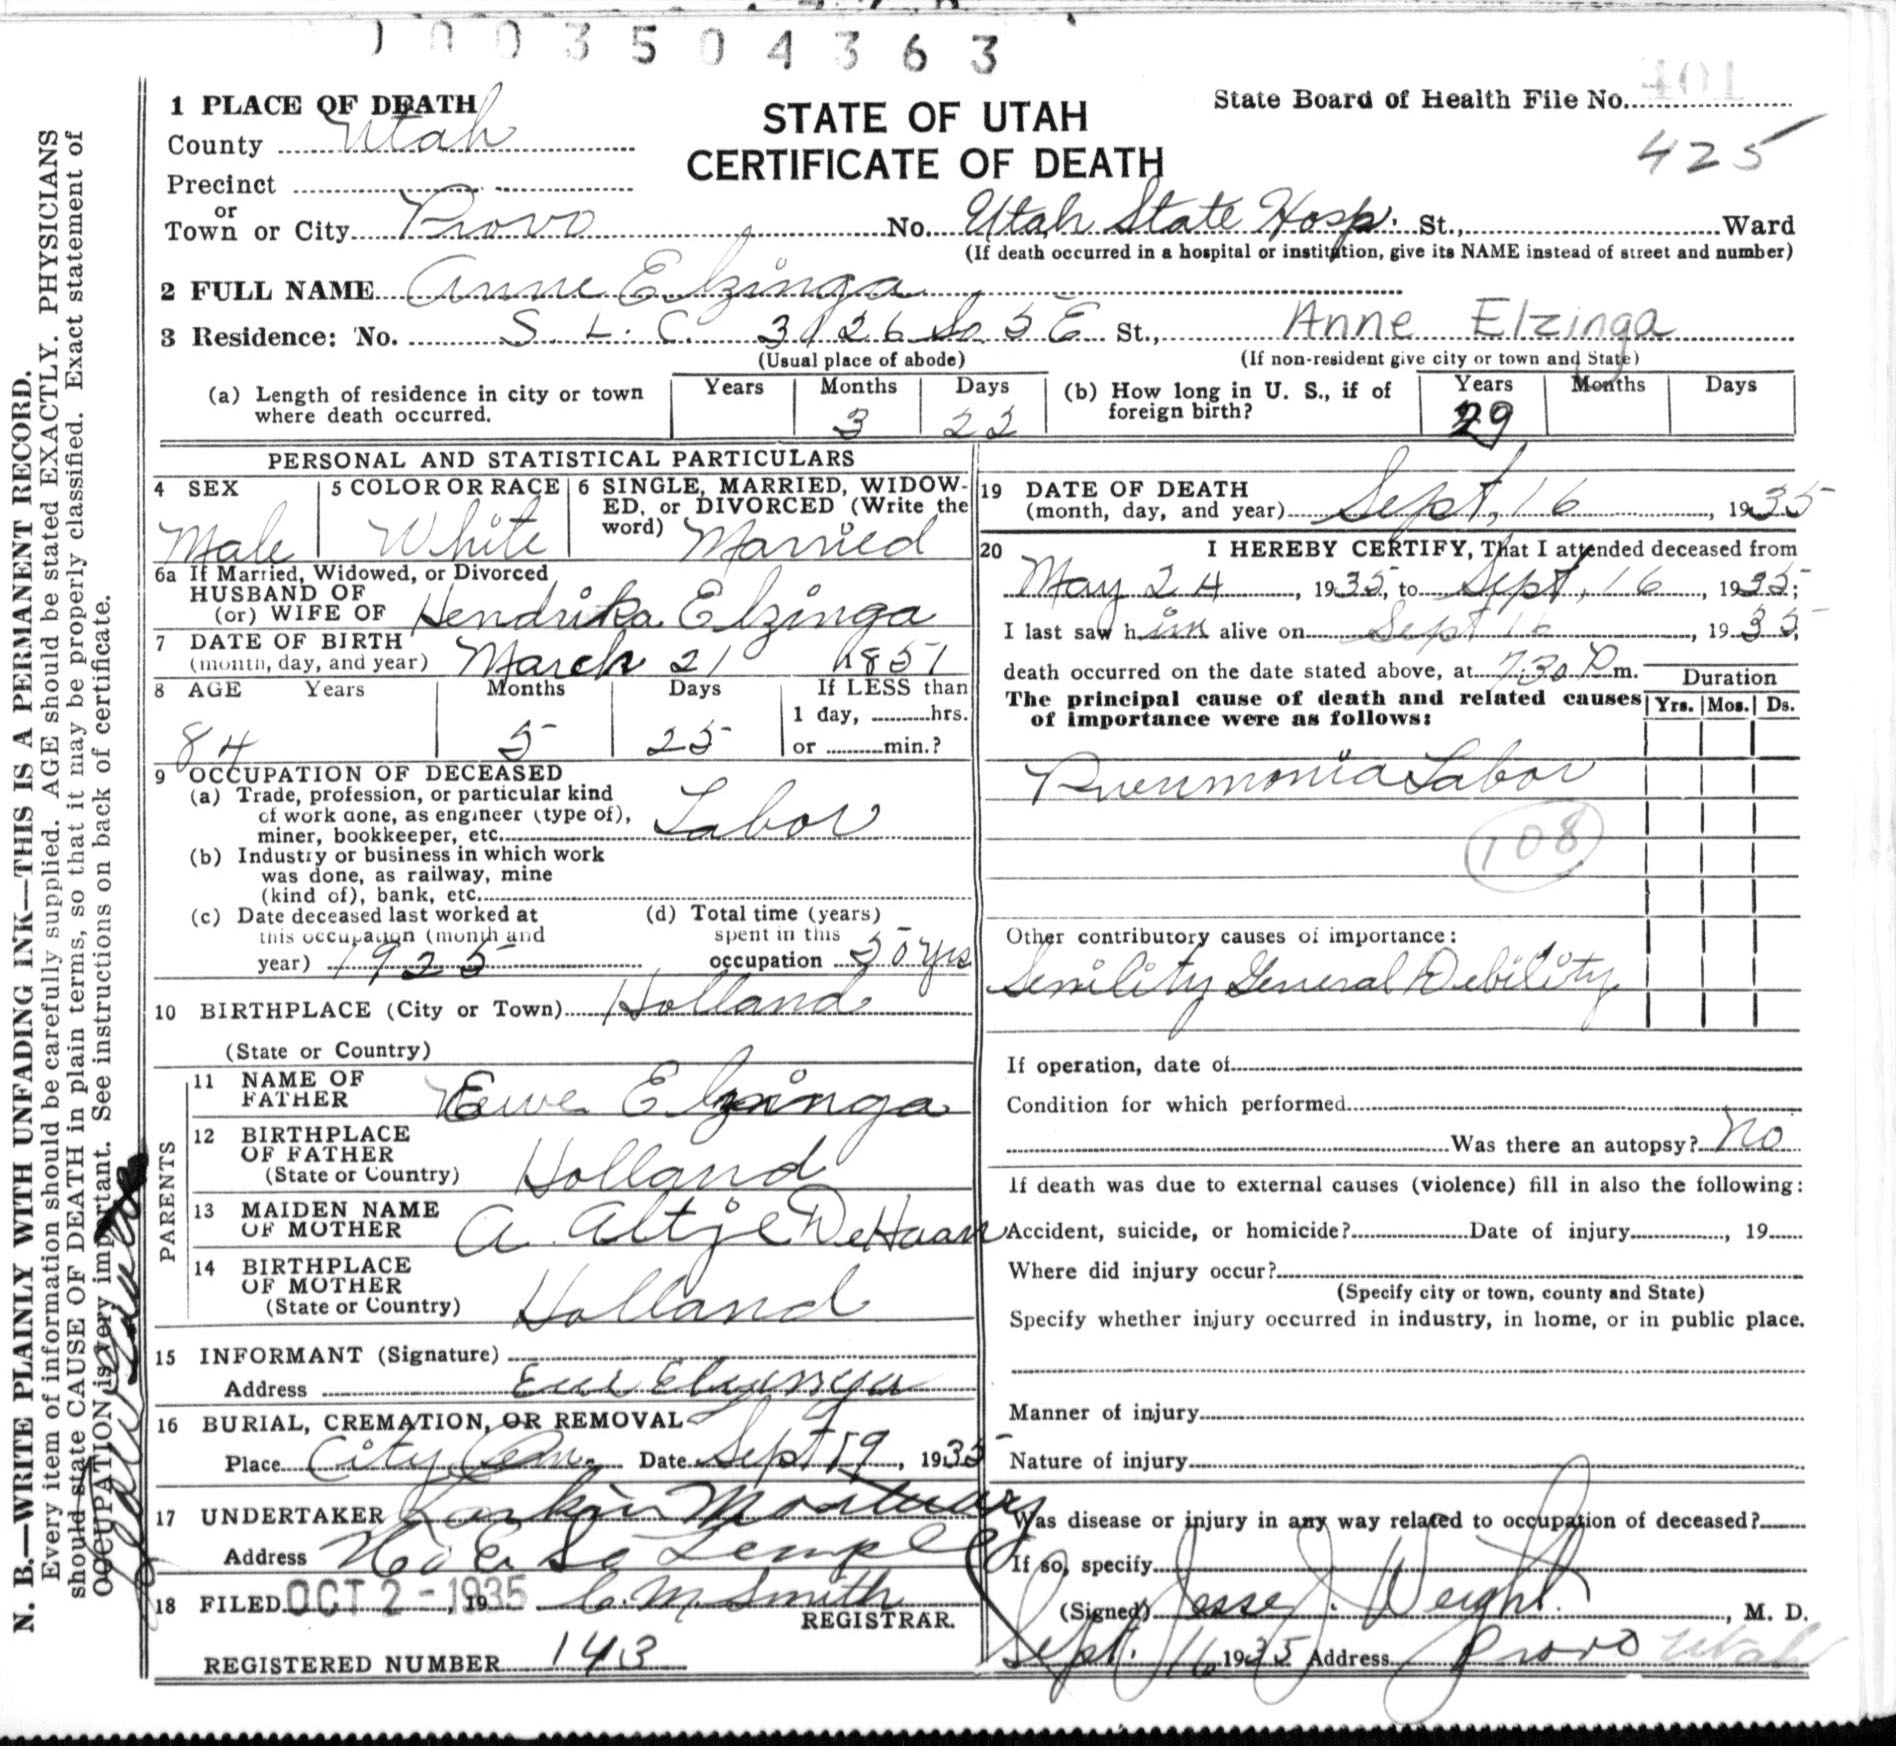 1003504363
1 PLACE OF DEATH
County Utah
Precinct
or
Town or City Provo No. Utah State Hosp. St., Ward
(If death occurred in a hospital or institution, give its NAME instead of street and number)
STATE OF UTAH
CERTIFICATE OF DEATH
State Board of Health File No. 401
425
2 FULL NAME Anne Elzinga
3 Residence: No. S. L. C. 3126 So 5 E St., Anne Elzinga
(Usual place of abode) (If non-resident give city or town and State)
(a) Length of residence in city or town where death occurred. Years Months 3 Days 22
(b) How long in U. S., if of foreign birth? Years 29 Months Days
PERSONAL AND STATISTICAL PARTICULARS
4 SEX Male
5 COLOR OR RACE White
6 SINGLE, MARRIED, WIDOWED, or DIVORCED (Write the word) Married
6a If Married, Widowed, or Divorced
HUSBAND OF
(or) WIFE OF Hendrika Elzinga
7 DATE OF BIRTH
(month, day, and year) March 21 1851
8 AGE Years 84 Months 5 Days 25 If LESS than
1 day, hrs.
or min.?
9 OCCUPATION OF DECEASED
(a) Trade, profession, or particular kind
of work done, as engineer (type of),
miner, bookkeeper, etc. Labor
(b) Industry or business in which work
was done, as railway, mine
(kind of), bank, etc.
(c) Date deceased last worked at
this occupation (month and
year) 1925
(d) Total time (years)
spent in this
occupation 50 yrs
10 BIRTHPLACE (City or Town) Holland
(State or Country)
PARENTS
11 NAME OF
FATHER Ewe Elzinga
12 BIRTHPLACE
OF FATHER
(State or Country) Holland
13 MAIDEN NAME
OF MOTHER A. Altje DeHaan
14 BIRTHPLACE
OF MOTHER
(State or Country) Holland
15 INFORMANT (Signature)
Address Ewe Elzinga
16 BURIAL, CREMATION, OR REMOVAL
Place City Cem. Date Sept 19, 1935
17 UNDERTAKER Larkin Mortuary
Address E. So Temple
18 FILED OCT 2 - 1935, 19 C. M. Smith
REGISTRAR.
REGISTERED NUMBER 143
19 DATE OF DEATH
(month, day, and year) Sept, 16, 1935
20 I HEREBY CERTIFY, That I attended deceased from
May 24, 1935, to Sept, 16, 1935;
I last saw him alive on Sept 16, 1935;
death occurred on the date stated above, at 7:30 P m.
The principal cause of death and related causes
of importance were as follows:
Duration
Yrs. Mos. Ds.
Pneumonia Lobar
108
Other contributory causes of importance:
Senility General Debility
If operation, date of
Condition for which performed
Was there an autopsy? No
If death was due to external causes (violence) fill in also the following:
Accident, suicide, or homicide? Date of injury, 19
Where did injury occur?
(Specify city or town, county and State)
Specify whether injury occurred in industry, in home, or in public place.
Manner of injury
Nature of injury
Was disease or injury in any way related to occupation of deceased?
If so, specify
(Signed) Jesse J. Weight, M. D.
Sept. 16 1935 Address Provo Utah
N. B.—WRITE PLAINLY WITH UNFADING INK—THIS IS A PERMANENT RECORD.
Every item of information should be carefully supplied. AGE should be stated EXACTLY. PHYSICIANS
should state CAUSE OF DEATH in plain terms, so that it may be properly classified. Exact statement of
OCCUPATION is very important. See instructions on back of certificate.